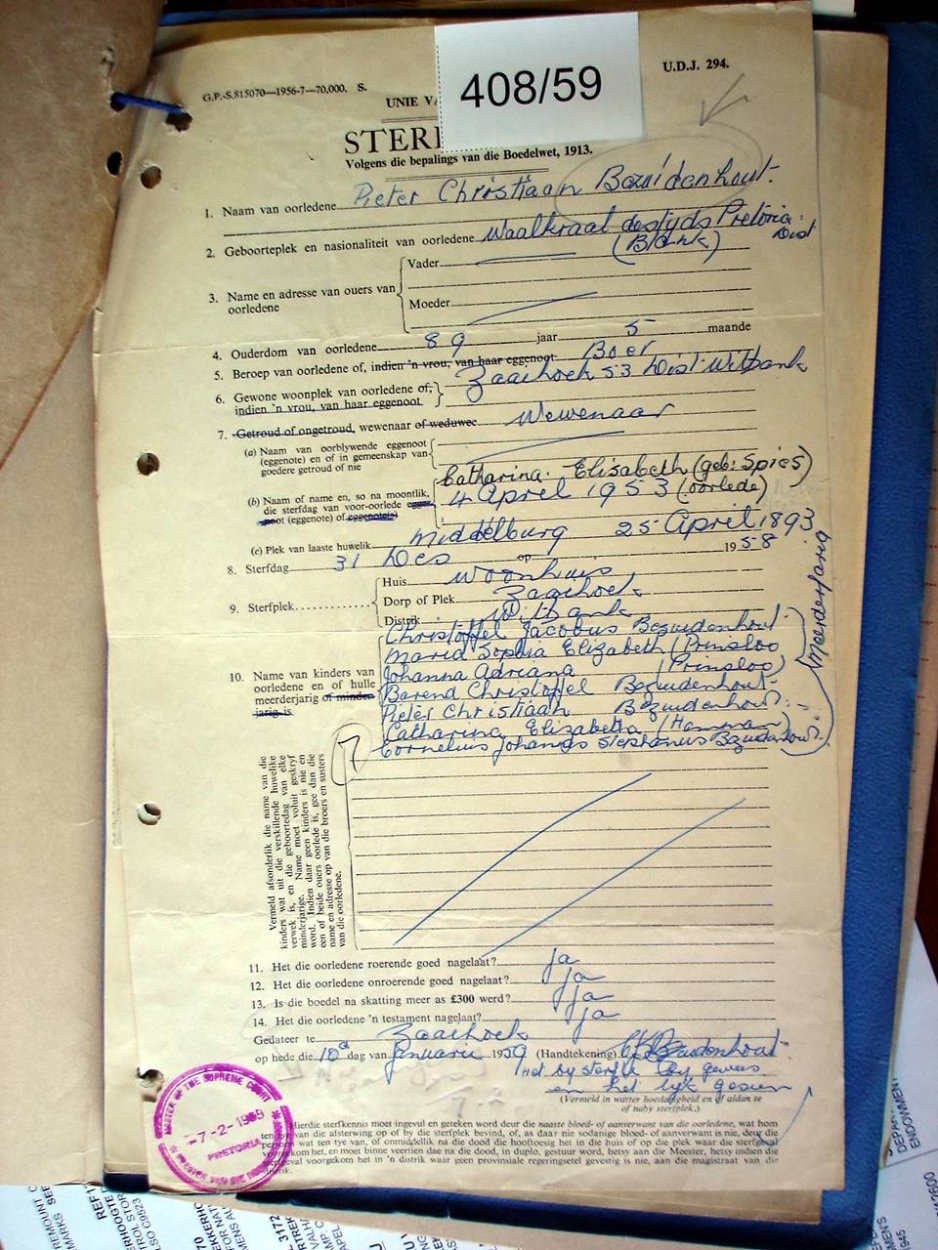 408/59
U.D.J. 294.
G.P.-S.815070—1956-7—70,000. S.
UNIE
STER
Volgens die bepalings van die Boedelwet, 1913.
1. Naam van oorledene Pieter Christiaan Bezuidenhout.
2. Geboorteplek en nasionaliteit van oorledene Waalkraal destyds Pretoria Dist
(Blank)
3. Name en adresse van ouers van oorledene
Vader
Moeder
4. Ouderdom van oorledene 89 jaar 5 maande
5. Beroep van oorledene of, indien 'n vrou, van haar eggenoot Boer
6. Gewone woonplek van oorledene of, indien 'n vrou, van haar eggenoot Zaaihoek 53 Dist Witbank
7. Getroud of ongetroud, wewenaar of weduwee Wewenaar
(a) Naam van oorblywende eggenoot
(eggenote) en of in gemeenskap van
goedere getroud of nie
Catharina Elisabeth (geb: Spies)
(b) Naam of name en, so na moontlik,
die sterfdag van voor-oorlede
(eggenote) of
4 April 1953 (oorlede)
(c) Plek van laaste huwelik Middelburg 25 April 1893
8. Sterfdag 31 Des op 1958
9. Sterfplek
Huis woonhuis
Dorp of Plek Zaaihoek
Distrik Witbank
10. Name van kinders van
oorledene en of hulle
meerderjarig of minder-
jarig is
Christoffel Jacobus Bezuidenhout
Maria Sophia Elizabeth (Prinsloo
Johanna Adriana (Prinsloo)
Barend Christoffel Bezuidenhout
Pieter Christiaan Bezuidenhout
Catharina Elizabetha (Hanman)
Cornelius Johannes Stephanus Bezuidenhout.
Meerderjarig
7
Vermeld afsonderlik die name van die
kinders wat uit die verskillende huwelike
verwek is, en die geboortedag van elke
minderjarige. Name moet voluit geskryf
word. Indien daar geen kinders is nie en
een of beide ouers oorlede is, gee dan die
name en adresse op van die broers en susters
van die oorledene.
11. Het die oorledene roerende goed nagelaat? Ja
12. Het die oorledene onroerende goed nagelaat? Ja
13. Is die boedel na skatting meer as £300 werd? Ja
14. Het die oorledene 'n testament nagelaat? Ja
Gedateer te Zaaihoek
op hede die 10de dag van Januarie 1959 (Handtekening) Bezuidenhout
Het by sterfte teenwoordig gewees
en het lyk gesien
(Vermeld in watter hoedanigheid en of aldan te
of naby sterfplek.)
Hierdie sterfkennis moet ingevul en geteken word deur die naaste bloed- of aanverwant van die oorledene, wat hom
ten tye van die afsterwing op of by die sterfplek bevind, of, as daar nie sodanige bloed- of aanverwant is nie, deur die
persoon wat ten tye van, of onmiddellik na die dood die hooftoesig het in die huis of op die plek waar die sterfgeval
voorgekom het, en moet binne veertien dae na die dood, in duplo, gestuur word, hetsy aan die Meester, hetsy indien die
sterfgeval voorgekom het in 'n distrik waar geen provinsiale regeringsetel gevestig is nie, aan die magistraat van die
distrik.
MASTER OF THE SUPREME COURT
-7-2-1959
PRETORIA